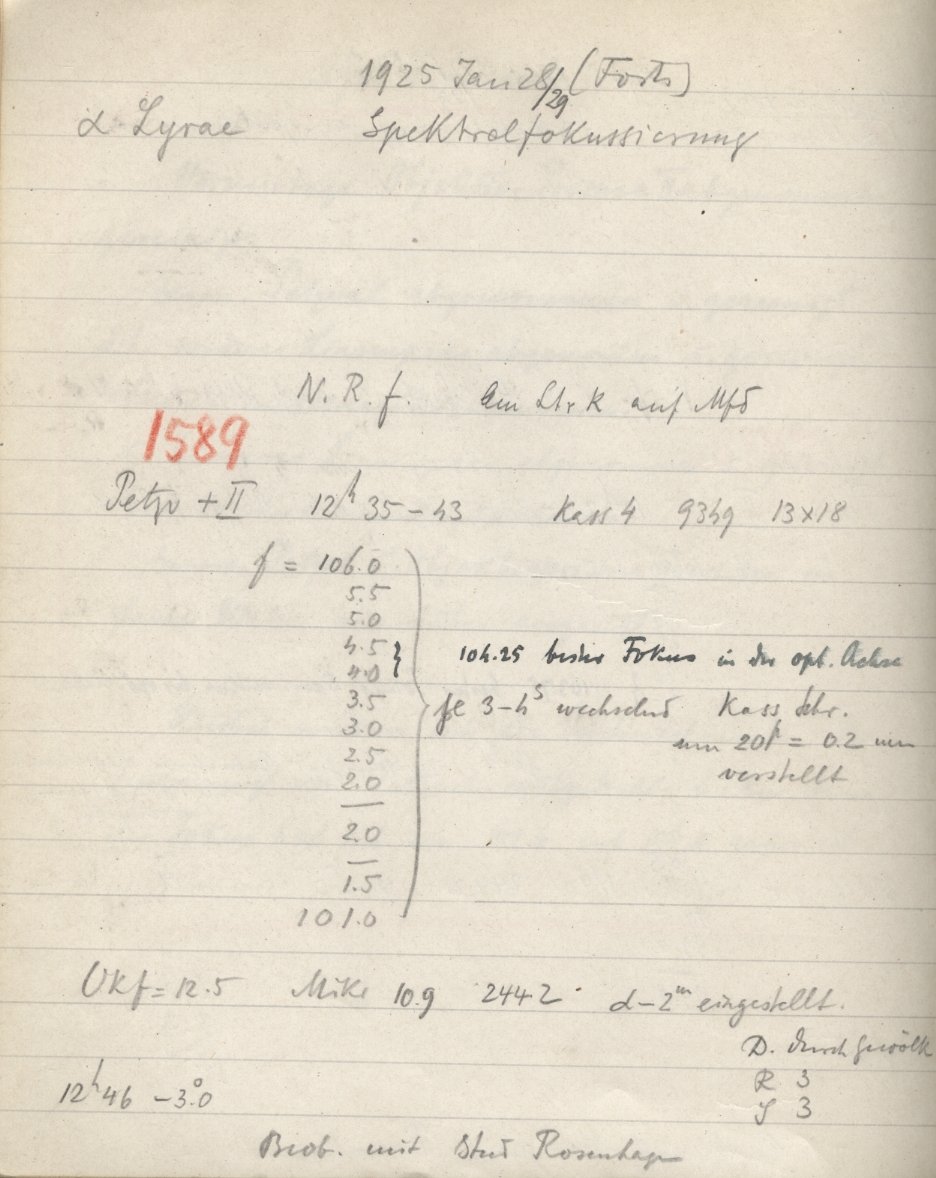 1925 Jan 28/29 (Forts)
α Lyrae Spektralfokussierung
N. R. f. Am Str K auf Mfd
1589
Petzv + II 12h 35 – 43 Kass 4 9349 13x18
f = 106.0
5.5
5.0
4.5
4.0
104.25 bester Fokus in der opt. Achse
3.5
je 3–4s wechselnd Kass Schr.
3.0
um 20p = 0.2 mm
2.5
verstellt
2.0
2.0
1.5
101.0
Okf = 12.5 Mikr 10.9 2442 α – 2m eingestellt.
D. durch Gewölk
R 3
12h 46 – 3°.0
J 3
Beob. mit Stud Rosenhagen